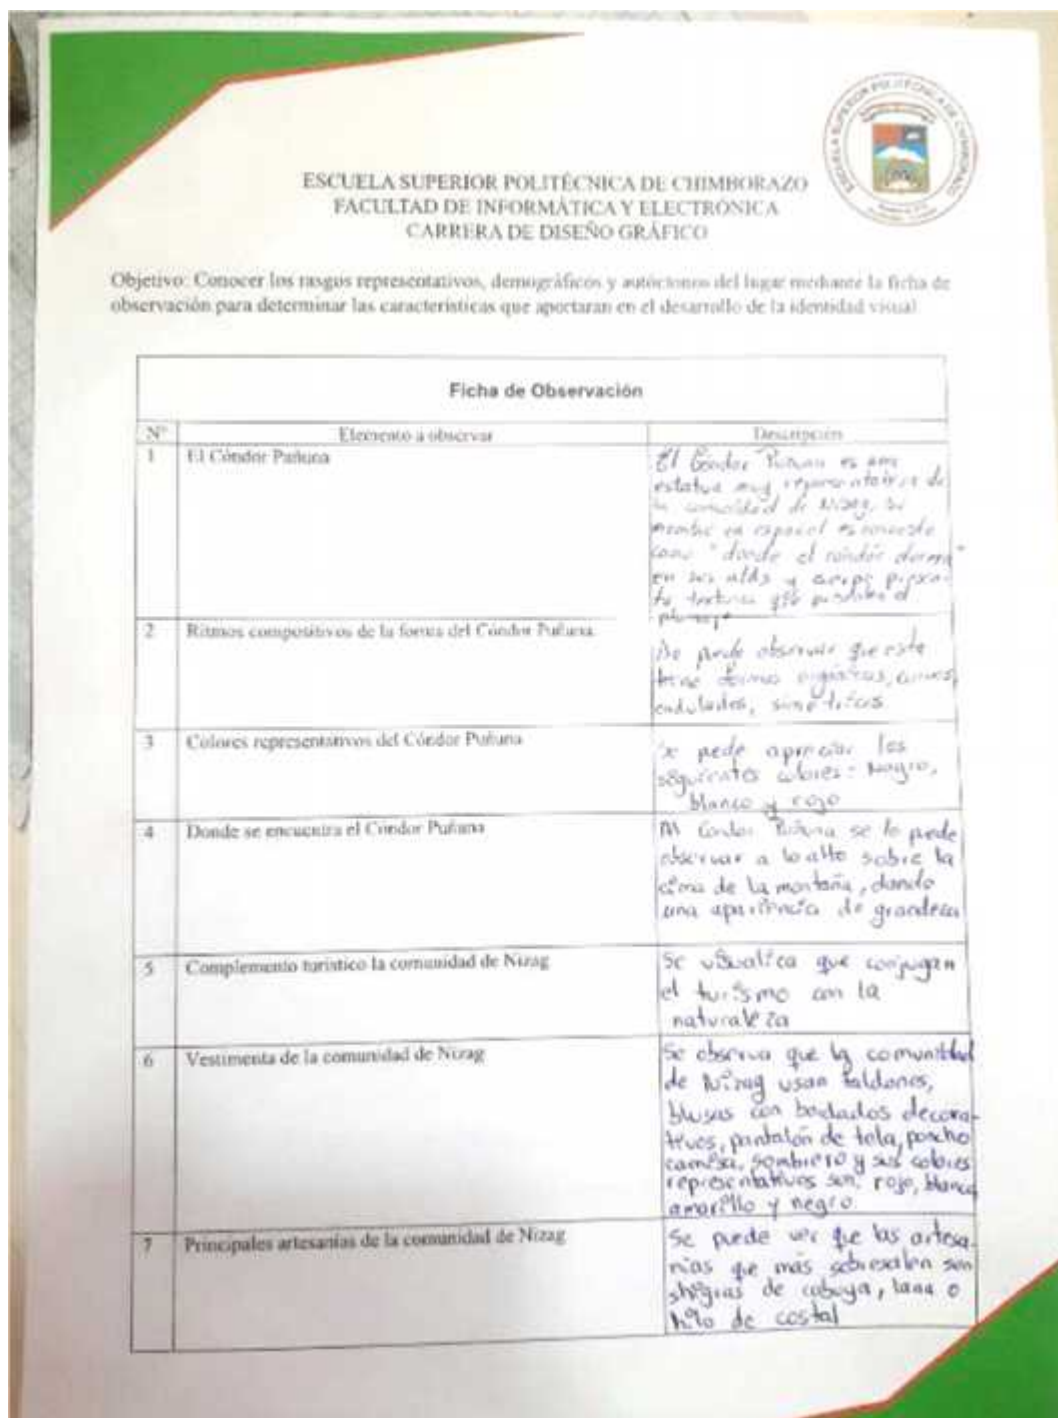 ESCUELA SUPERIOR POLITÉCNICA DE CHIMBORAZO
ESCUELA SUPERIOR POLITÉCNICA DE CHIMBORAZO
FACULTAD DE INFORMÁTICA Y ELECTRÓNICA
CARRERA DE DISEÑO GRÁFICO
Objetivo: Conocer los rasgos representativos, demográficos y autóctonos del lugar mediante la ficha de
observación para determinar las características que aportaran en el desarrollo de la identidad visual
Ficha de Observación
Nº Elemento a observar Descripción
1 El Cóndor Puñuna
El Cóndor Puñuna es una
estatua muy representativa de
la comunidad de Nizag, su
nombre en español es conocido
como "donde el cóndor duerme"
en sus alas y cuerpo presen-
ta texturas que el
plumaje
2 Ritmos compositivos de la forma del Cóndor Puñuna
Se puede observar que este
tiene formas orgánicas, curvas,
onduladas, simétricas
3 Colores representativos del Cóndor Puñuna
Se pede apreciar los
siguientes colores: Negro,
blanco y rojo
4 Donde se encuentra el Cóndor Puñuna
Al Condor Puñuna se lo puede
observar a lo alto sobre la
cima de la montaña, dando
una apariencia de grandeza
5 Complemento turístico la comunidad de Nizag
Se visualiza que conjugan
el turismo con la
naturaleza
6 Vestimenta de la comunidad de Nizag
Se observa que la comunidad
de Nizag usan faldones,
blusas con bordados decora-
tivos, pantalón de tela, poncho
camisa, sombrero y sus colores
representativos son: rojo, blanco
amarillo y negro.
7 Principales artesanías de la comunidad de Nizag
Se puede ver que las artesa-
nías que más sobresalen son
shigras de cabuya, lana o
hilo de costal